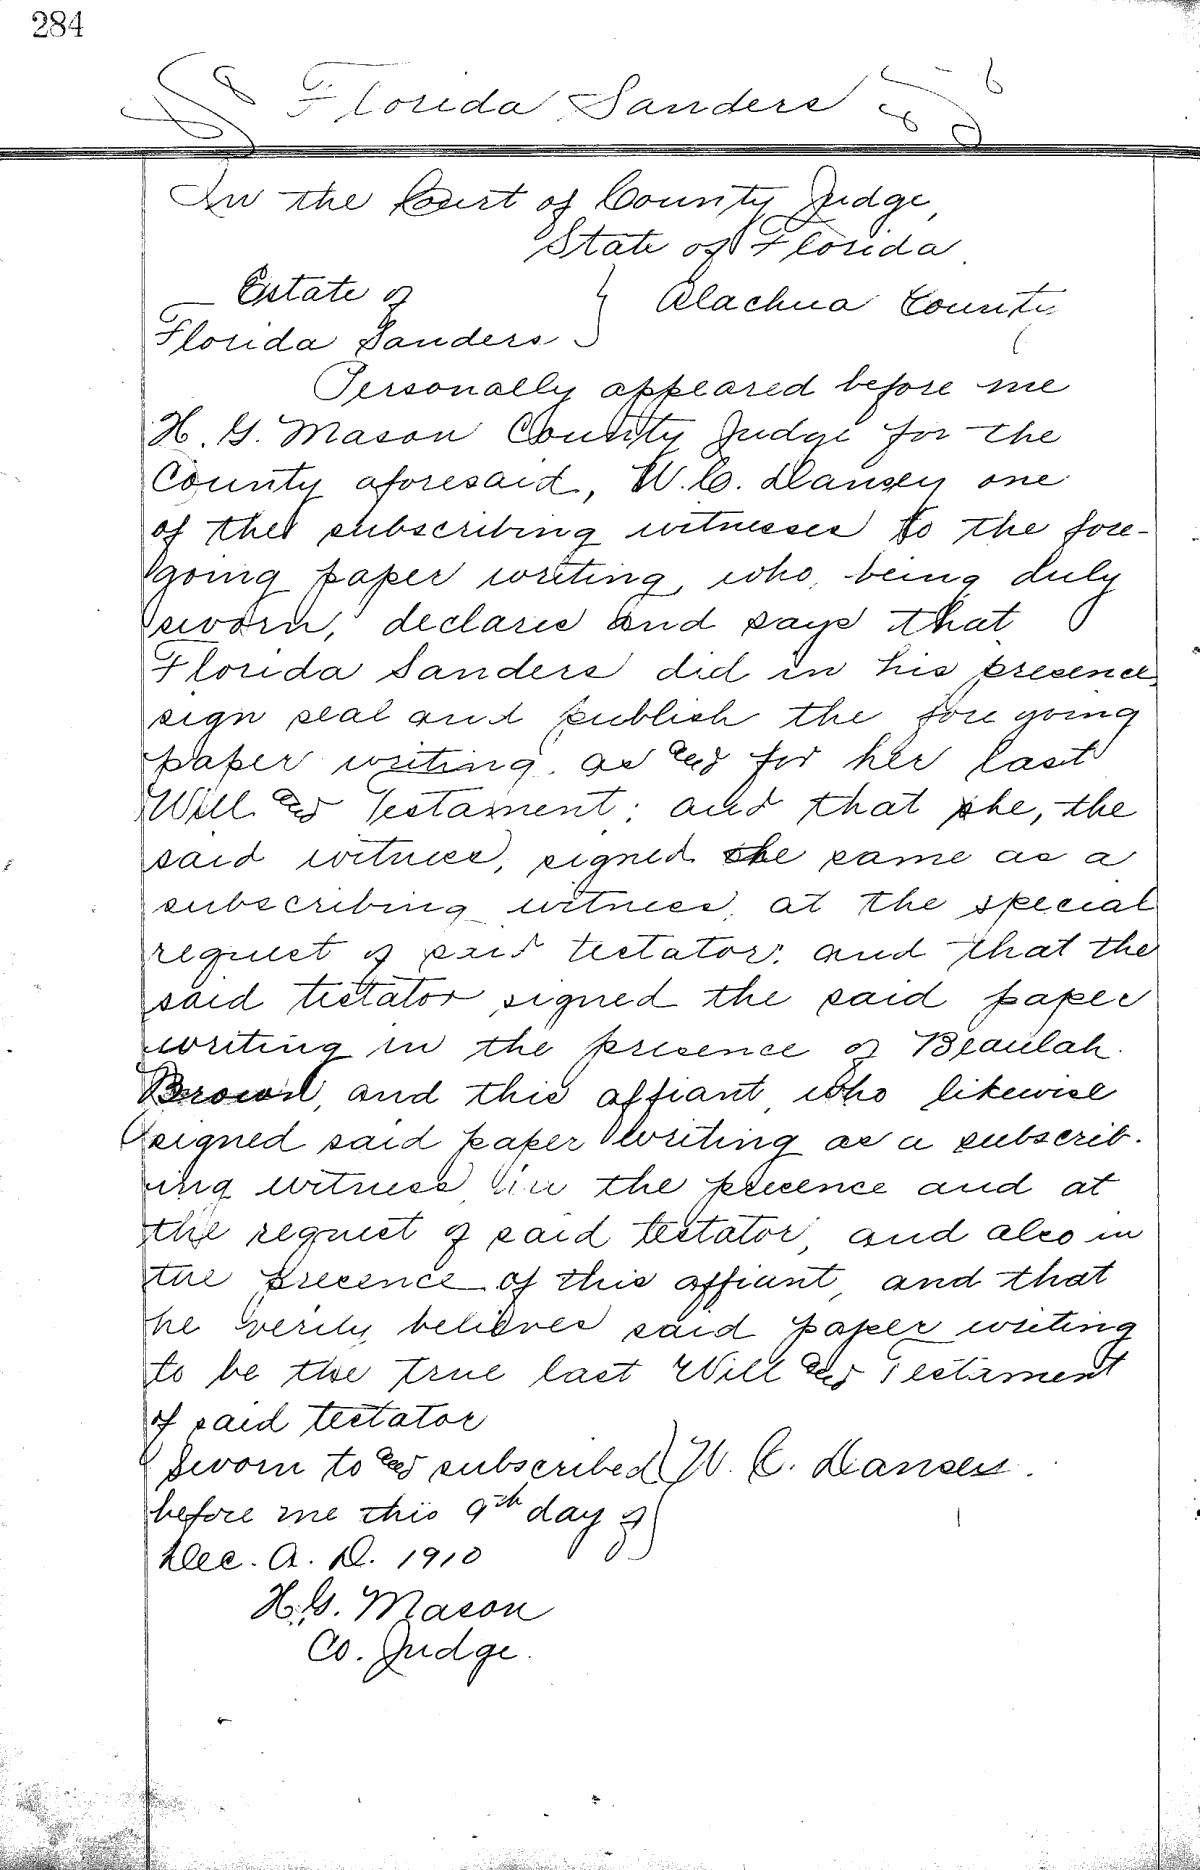 284
Florida Sanders
In the Court of County Judge,
State of Florida
Estate of } Alachua County
Florida Sanders
Personally appeared before me
H. G. Mason County Judge for the
County aforesaid, W. C. Dansey one
of the subscribing witnesses to the fore-
going paper writing, who, being duly
sworn, declares and says that
Florida Sanders did in his presence,
sign seal and publish the foregoing
paper writing, as and for her last
Will and Testament; and that she, the
said witness, signed the same as a
subscribing witness, at the special
request of said testator; and that the
said testator signed the said paper
writing in the presence of Beaulah
Brown, and this affiant who likewise
signed said paper writing as a subscrib-
ing witness in the presence and at
the request of said testator, and also in
the presence of this affiant, and that
he verily believes said paper writing
to be the true last Will and Testament
of said testator
Sworn to and subscribed } W. C. Dansey.
before me this 9th day of
Dec. A. D. 1910
H. G. Mason
Co. Judge.